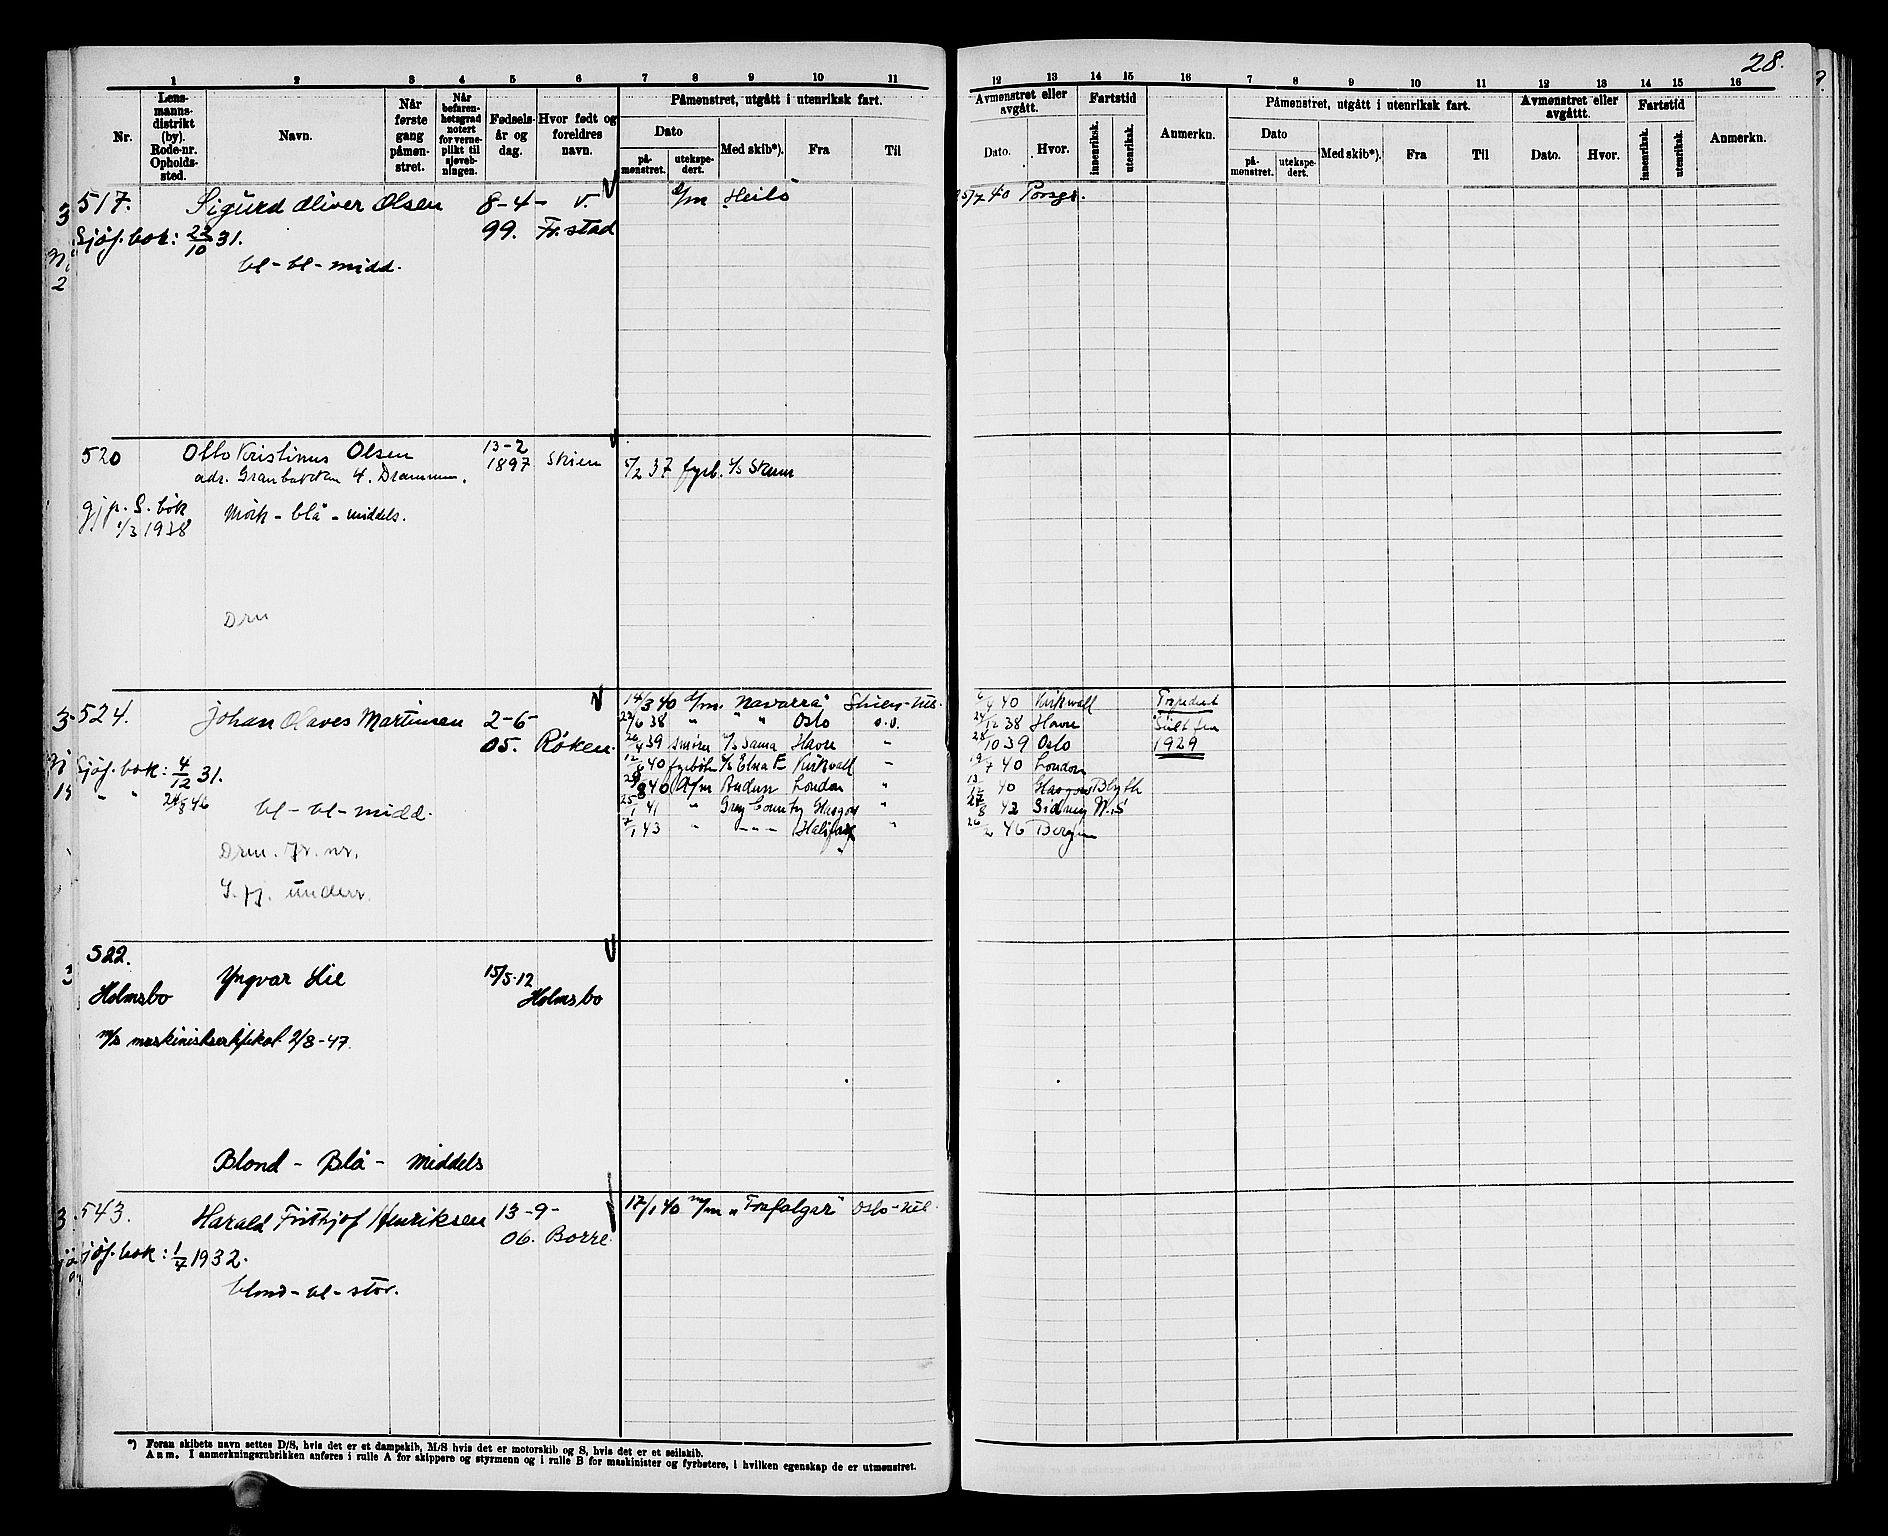 28.
1 2 3 4 5 6 7 8 9 10 11
12 13 14 15 16 7 8 9 10 11 12 13 14 15 16
Nr.
Lens-
manns-
distrikt
(by).
Rode-nr.
Opholds-
sted.
Navn.
Når
første
gang
påmøn-
stret.
Når
befaren-
hetsgrad
notert
for verne-
plikt til
sjøveb-
ningen.
Fødsels-
år og
dag.
Hvor født og
foreldres
navn.
Påmønstret, utgått i utenriksk fart.
Dato
på-
mønstret.
utekspe-
dert.
Med skib*).
Fra
Til
Avmønstret eller
avgått.
Dato.
Hvor.
Fartstid
innenriksk.
utenriksk.
Anmerkn.
Påmønstret, utgått i utenriksk fart.
Dato
på-
mønstret.
utekspe-
dert.
Med skib*).
Fra
Til
Avmønstret eller
avgåttt.
Dato.
Hvor.
Fartstid
innenriksk.
utenriksk.
Anmerkn.
517. Sigurd Oliver Olsen 8-4- v. Heilo 5/7 40 Porsgr.
Sjøf. bok: 22/10 31. 99. Fr.stad
bl-bl-midd.
520 Otto Kristinus Olsen 13-2
1897 Skien 5/2 37 fyrb.
adr. 4. Drammen.
S. bok Mörk - blå - middels.
1/3 1938
Drm
524. Johan Olaves Martinsen 2-6- 14/3 40 d/m. "Navarra" 6/4 40 Kirkwall
/6 38 " " " Oslo 24/12 38 Havre
05. Røken. 26/4 39 Havre " 28/10 39 Oslo 1929
Sjøf. bok: 4/12 31. 12/6 40 Elna E Kirkwall " 19/7 40 London
" " 24/8 46 /8 40 London " 40 Blyth
bl-bl-midd. 25/1 41 " Grey County " 27/8 42 Sidney
7/1 43 " - - - Halifax " 26/2 46 Bergen
Drm. nr.
underr.
522.
Yngvar Lie 15/5-12
Holmsbo Holmsbo
2/8-47
Blond - Blå - Middels
543. Harald Frithjof Henriksen 13-9- 17/1 40 m/m "Trafalgar"
06. Borre.
Sjøf. bok: 1/7 1932.
blond-bl-stor.
*) Foran skibets navn settes D/S, hvis det er et dampskib, M/S hvis det er motorskib og S, hvis det er et seilskib.
Anm. I anmerkningsrubrikken anføres i rulle A for skippere og styrmenn og i rulle B for maskinister og fyrbøtere, i hvilken egenskap de er utmønstret.